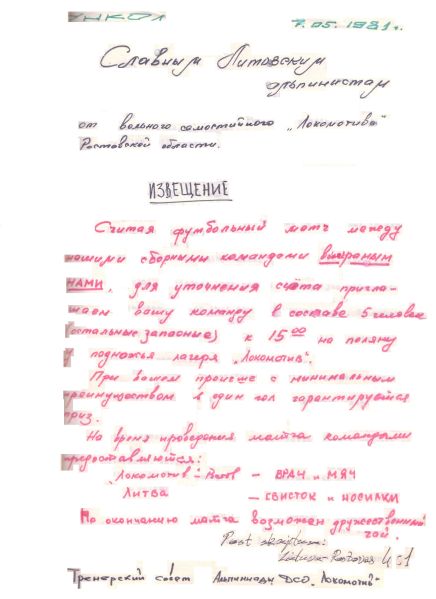 УНКОЛ 7.05.1981г.
Славным Литовским
альпинистам
от вольного самостийного „Локомотива“
Ростовской области.
ИЗВЕЩЕНИЕ
Считая футбольный матч между
нашими сборными командами выиграным
НАМИ, для уточнения счёта пригла-
шаем вашу команду в составе 5 человек
(остальные запасные) к 15⁰⁰ на поляну
у подножья лагеря „Локомотив“.
При вашем проигрыше с минимальным
преимуществом в один гол гарантируется
приз.
На время проведения матча командами
предоставляются:
„Локомотив“-Ростов – ВРАЧ и МЯЧ
ЛИТВА – СВИСТОК и НОСИЛКИ
По окончанию матча возможен дружественный
чай.
Post skriptum:
Lietuva-Rostovas 4:1
Тренерский совет Альпиниады ДСО „Локомотив“